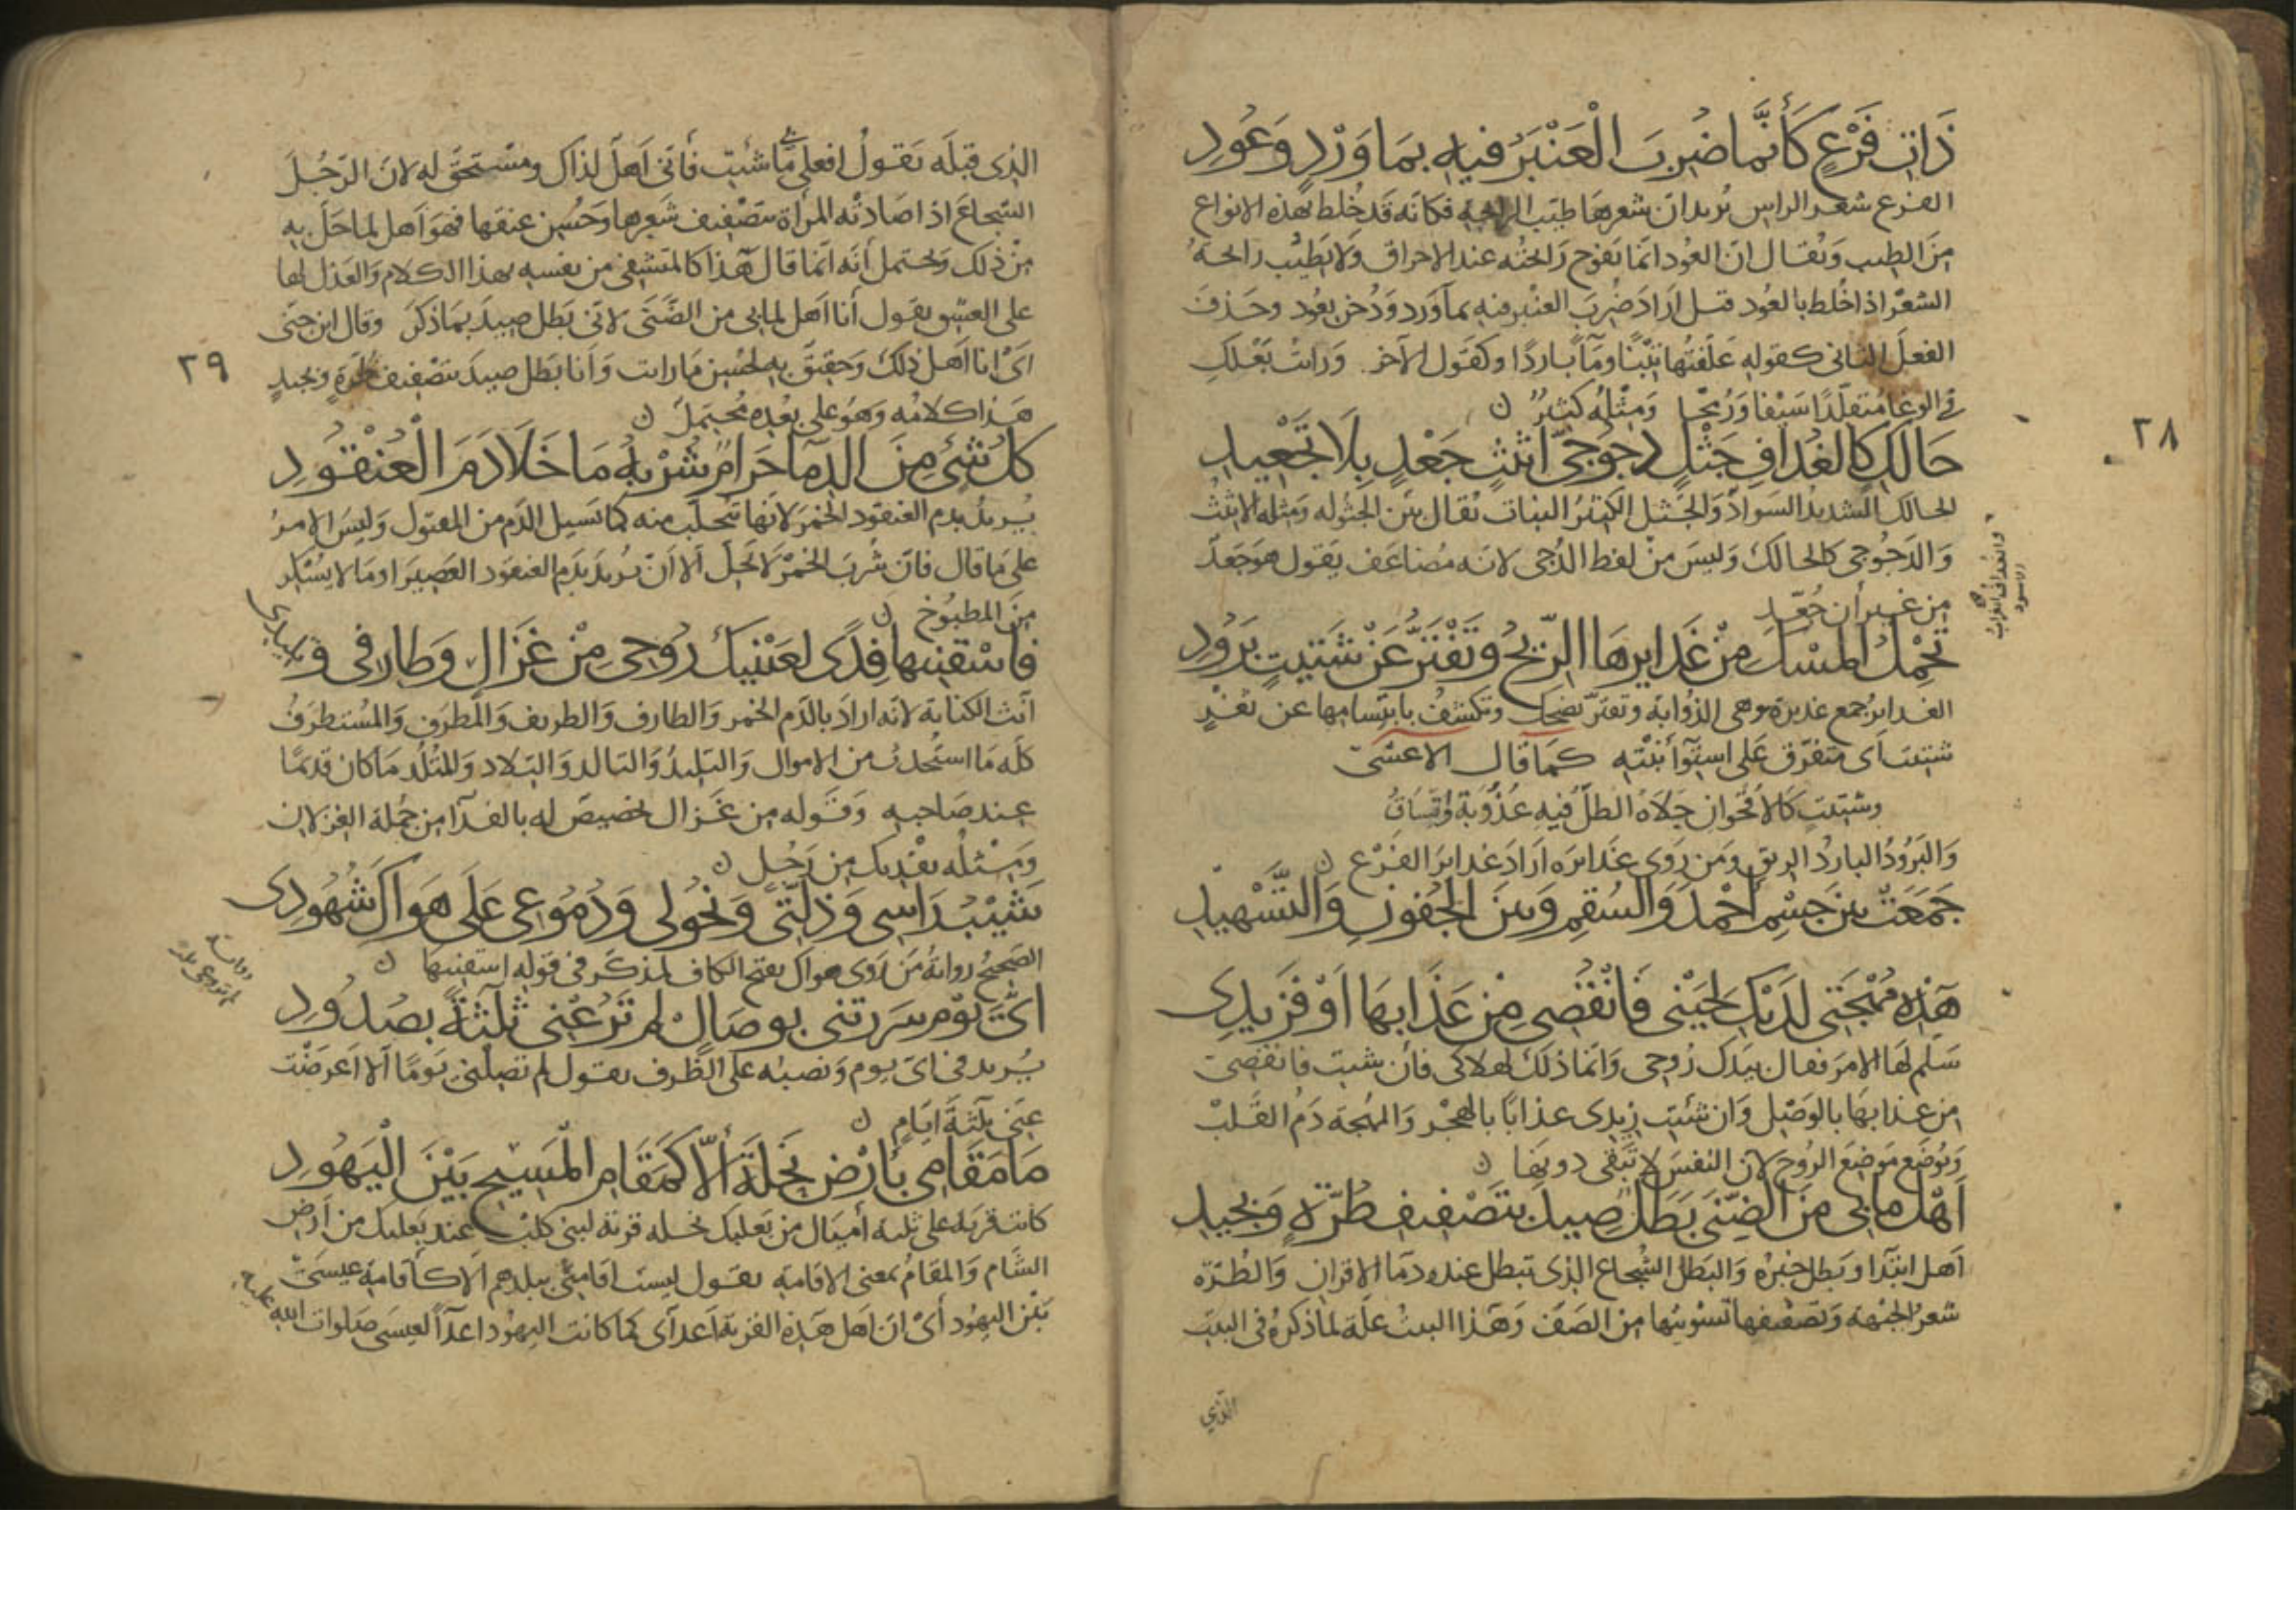 ذَاتِ فَرْعٍ كَأَنَّمَا ضُرِبَ الْعَنْبَرُ فيهِ بِمَاوَرْدٍ وَعُودِ
الفرع شعر الراس يُريد ان شعرها طيّب الرايحة فكانّه قد خُلط بهذه الانواع
مِن الطيب وَيُقال انّ العُود انّما تفوح رَائحته عند الاحراق وَلا يَطيب رائحةُ
الشعَر اذا خُلط بالعُود قيل ارَادَ ضُرِبَ العنْبر فيه بماوَرد وَدُخن بعُود وحَذفَ
الفعلَ الثانى كقوله عَلَفتُها تِبْنًا ومَآً بَاردًا وكقول الآخر وَرَايتُ بَعْلكِ
فى الوغَا مُتقلّدًا سَيْفا وَرُمْحا وَمثْله كثيرٌ ن
٢٨
حَالِكٍ كَالغُدَافِ جَثْلٍ دَجُوجِىّ اثيْثٍ جَعْدٍ بِلَا تَجْعِيدِ
الحالك الشديد السَوادِ وَالجَثل الكثيرُ النبات يُقال بيّن الجثوله وَمثله الاثيْثُ
وَالدَجُوجى كالحالكَ وَليسَ مِنْ لفظ الدُجى لانه مُضاعَف يَقول هوَجَعدٌ
مِن غير أن جُعّد
والغداف الغراب
الاسود
تَحْمِلُ المِسْكَ مِنْ غَدَايرِهَا الرّيحُ وَتَفْتَرُّ عَنْ شَتِيتٍ بَرَوُدِ
الغدايرُ جمع غديرة وهى الذُوابَة وتفترّ تضحك وتكشفُ بابتسامها عن ثغْرٍ
شتيت اى متفرّق عَلى استِوَآ نِبْتَتِه كمَا قال الاعشى
وشتيتٍ كالاقحَوان جَلَاهُ الطلّ فيهِ عُذُوبَةٌ وَاتّسَاقُ
وَالبَرُودُ الباردُ الريق ومَن رَوى غدَايرَه ارادَ غدايرَ الفرْع ن
جَمَعَتْ بَينَ جِسْمِ أحْمَدَ وَالسُقمِ وَبَينَ الجُفُونِ وَالتَّسْهِيدِ
هَذِهِ مُهْجَتى لَدَيْكِ لِحَيْنى فَانْقُصِى مِنْ عَذَابِهَا اَوْ فَزِيدِى
سَلّم لَهَا الامرَ فقال بيَدك رُوحى وَانّما ذلكَ لهلاكى فان شيت فانقصى
مِن عذابهَا بالوَصْل وَان شئتِ زيدى عذابًا بالهَجْر وَالمهجة دَمُ القلبْ
وَتُوضَع مَوضعَ الروُح لانّ النفسَ لا تَبْقى دونهَا ن
اَهْلُ مَا بى مِنَ الضّنَى بَطَلٌ صِيدَ بتَصْفِيفِ طُرّةٍ وَبِجِيدِ
اَهل ابتدا وبَطل خبرُه وَالبَطل الشجاع الذى تبطل عنده دمَا الاقران وَالطُرّة
شعرُ الجَبْهَة وَتَصْفيفها تَسْويتُها مِن الصَفّ وَهَذا البيتُ علّة لما ذكرهُ فى البيت
الذي
الذى قبلَه يَقولُ افعلى بى مَا شئتِ فأنى اَهلٌ لذاكَ ومسْتَحقٌّ له لانّ الرّجُلَ
الشجاعَ اذا صَادتْه المرأة بتصْفيف شَعرهَا وَحُسن عنقها فهوَ اَهل لما حَلّ به
مِنْ ذلك وَيحتمل أنّه انّما قالَ هَذَا كالمتشفى من نفسِه بهذا الكلام وَالعَذل لها
على العشق يقول أنا اَهل لما بى من الضّنَى لانى بَطل صيدَ بمَا ذكرَ وقال ابن جنى
اىْ انا اَهل ذلكَ وَحَقيقٌ به لحُسن مَا رايت وَأنا بَطل صيدَ بتصْفيف طرّةٍ وَبجيدٍ
٢٩
هَذا كلامُه وَهوَ على بُعْدِه مُحتمَل ن
كلُ شَىٍ مِنَ الدِّمَا حَرَامٌ شُرْبُهُ مَا خَلَا دَمَ الْعُنْقُودِ
يُريدُ بدم العنقود الخمرَ لانهَا تتَحلّب منه كما يَسيل الدّم من المقتول وَليسَ الامرُ
على مَا قال فانّ شُربَ الخَمرْ لَا يَحلّ اَلا اَن يُريدَ بدَم العنقود العَصيرَ او مَا لا يُسْكر
مِنَ المطبُوخ ن
فَاسْقِنِيهَا فِدًى لِعَيْنَيْكَ رُوحِى مِنْ غَزَالٍ وَطَارِفى وَتِلِيدِى
انّث الكناية لانّه ارادَ بالدّم الخمر وَالطارف وَالطريف وَالمطرَف وَالمسْتطرَفُ
كلّه مَا استُحدثُ من الاموال وَالتليدُ وَالتالد وَالتِلاد وَالمتْلَد مَا كان قديمًا
عند صَاحبِه وَقولُه مِن غزال تخصيص له بالفدآ من جُملة الغزلان
وَمِثلُه نفْديك مِن رَجُل ن
شَيْبُ رَاسِى وَذِلّتى وَنُحُولى وَدُمُوعِى عَلَى هَوَاكَ شُهُودِى
الصَحيحُ روايةُ مَن رَوى هواكَ بفتح الكاف لمذكّر فى قوله اسقنيها ن
اىَّ يَوْمٍ سَرَرتنى بوِصَالٍ لم تَرُعْنِى ثَلَاثَةً بِصُدُودِ
يُريد فى اىّ يوم وَنصبه على الظرف يقول لم تصلنى يَومًا الا اعرَضْت
عنّى ثلثةَ ايَام ن
مَا مَقَامِى بأَرْضِ نَخْلَةَ اِلَّا كَمَقَامِ الْمَسِيحِ بَيْنَ الْيَهُودِ
كانت قرية على ثلثة أميَال من بَعلبك نخله قرية لبنى كلبْ عند بَعلبك من أرض
الشَّام وَالمقامُ بمعنى الاقامَة يقول ليستْ اقامتى ببلدهم الا كأقامة عيسَى
بَيْن اليهُود أىْ ان اَهل هَذه القرية اَعدآى كما كانت اليهود اعدآً لعيسَى صلوات الله عليه